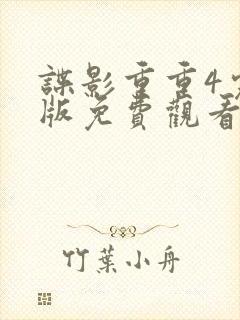 諜影重重4
版免費觀看
竹葉小舟